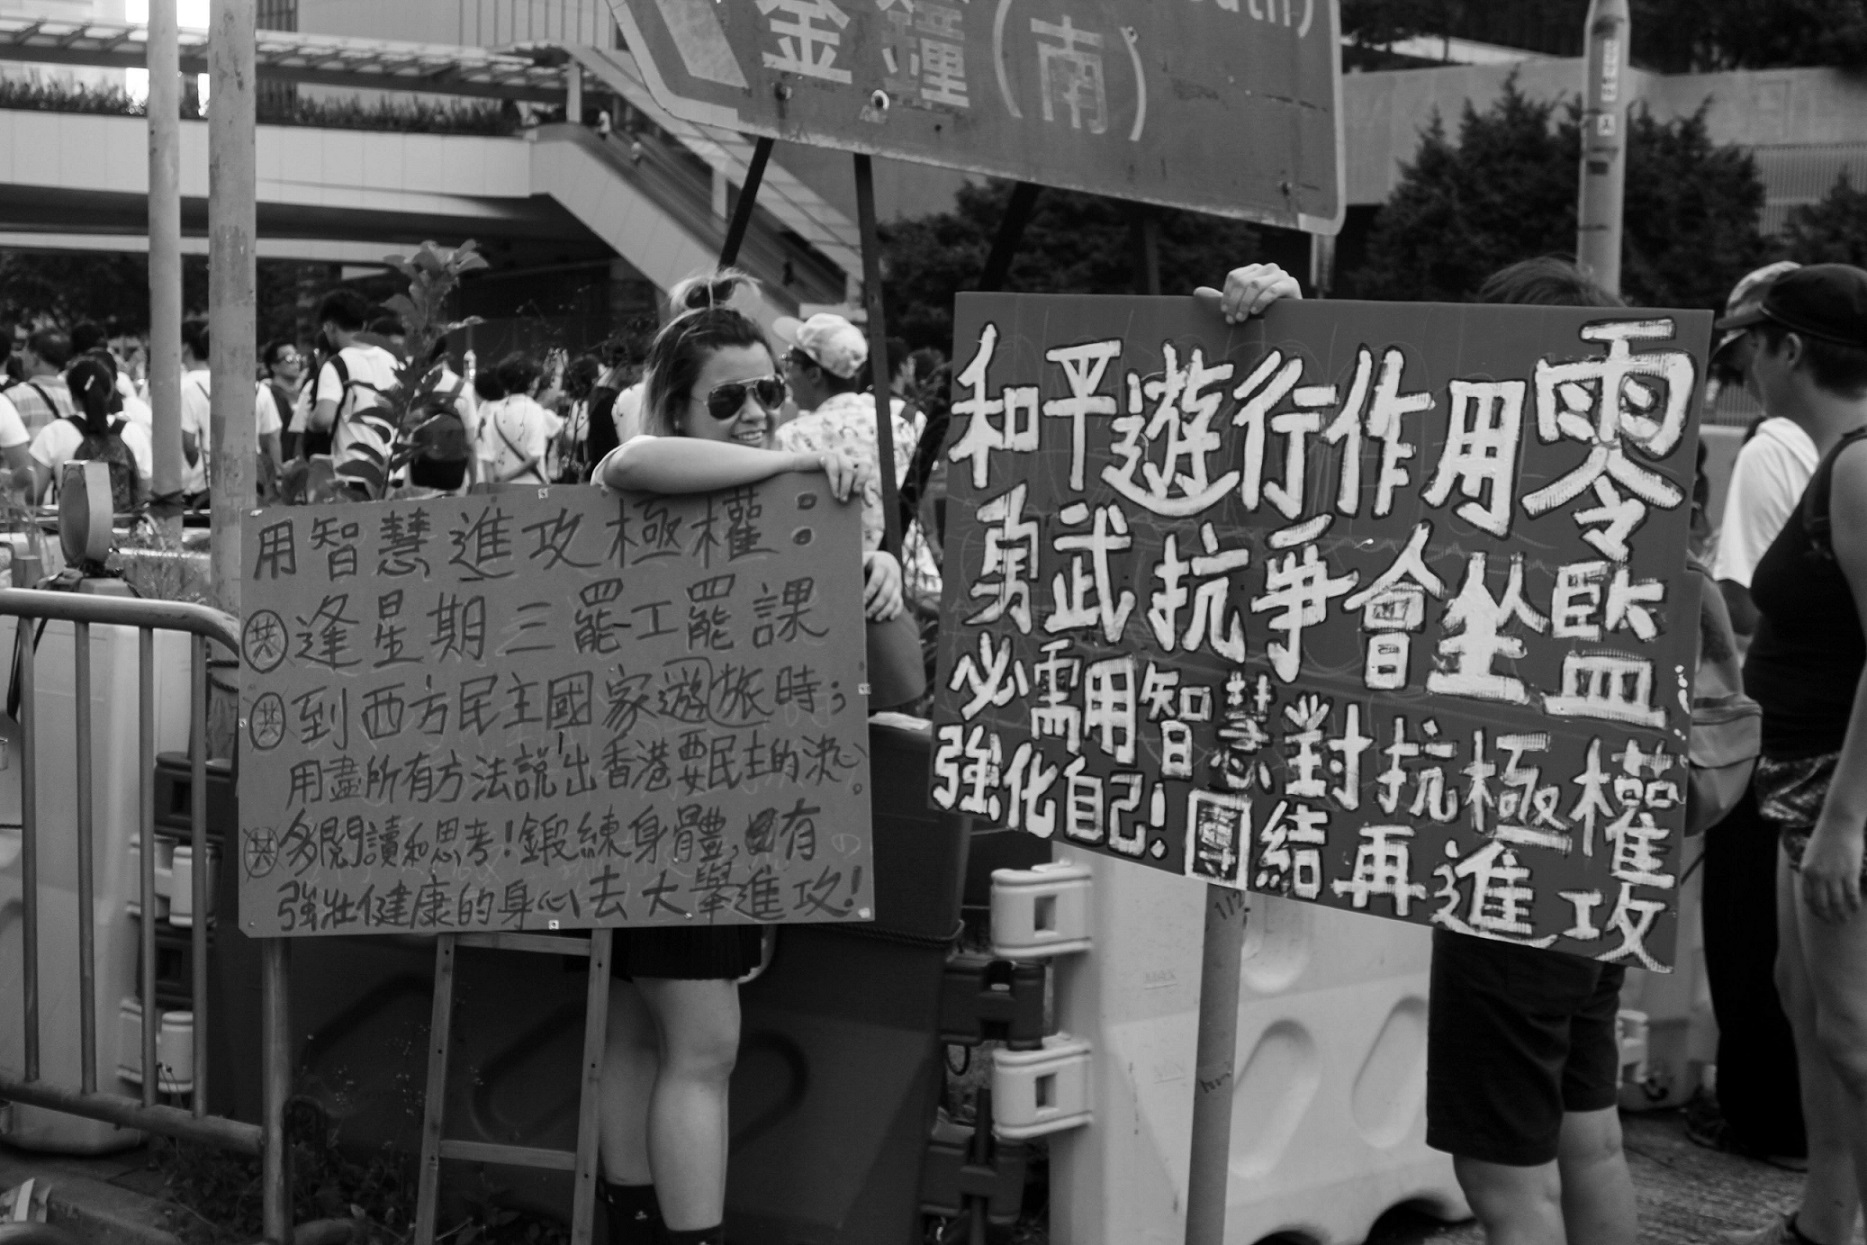 金鐘(南)
用智慧進攻極權：
共逢星期三罷工罷課
共到西方民主國家遊旅時；
用盡所有方法說出香港要民主的決心。
共多閱讀和思考！鍛練身體，有
強壯健康的身心去大舉進攻！
和平遊行作用零
勇武抗爭會坐監
必需用智慧對抗極權
強化自己！團結再進攻